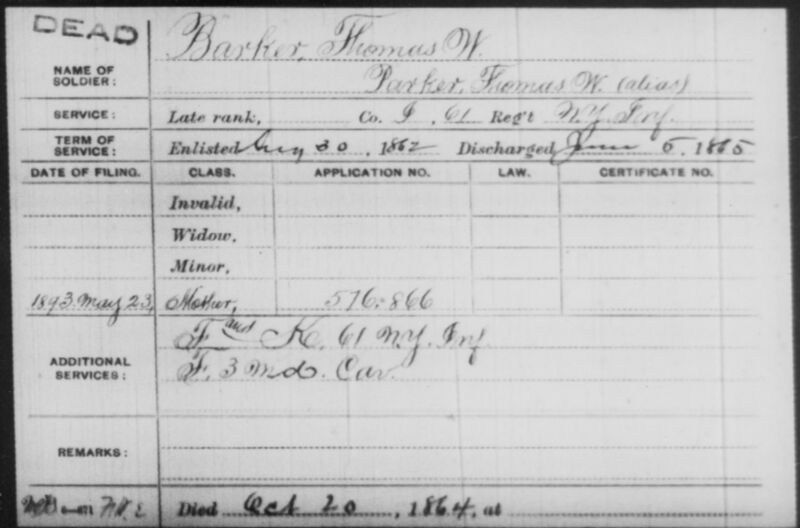 DEAD
NAME OF SOLDIER:
Barker, Thomas W.
Parker, Thomas W. (alias)
SERVICE: Late rank, Co. I, 61 Reg't N.Y. Inf.
TERM OF SERVICE: Enlisted Aug 30, 1862 Discharged June 5, 1865
DATE OF FILING. CLASS. APPLICATION NO. LAW. CERTIFICATE NO.
Invalid,
Widow,
Minor,
1893. May 23, Mother, 576.866
ADDITIONAL SERVICES:
F and K. 61 N.Y. Inf.
F. 3 Md. Cav.
REMARKS:
Died Oct 20, 1864, at